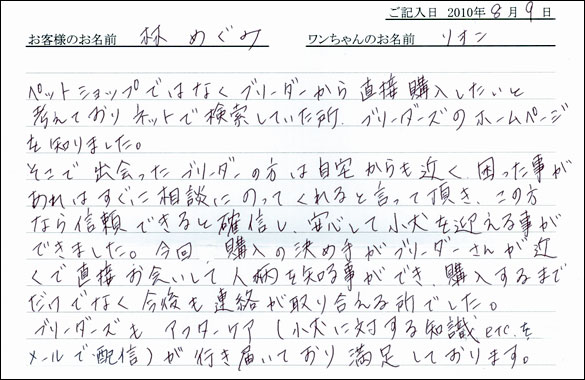 ご記入日 2010年8月9日
お客様のお名前 林 めぐみ ワンちゃんのお名前 リオン
ペットショップではなくブリーダーから直接購入したいと
考えており ネットで検索していた所、ブリーダーズのホームページ
を知りました。
そこで出会ったブリーダーの方は自宅からも近く、困った事が
あればすぐに相談にのってくれると言って頂き、この方
なら信頼できると確信し、安心して小犬を迎える事が
できました。今回、購入の決め手がブリーダーさんが近
くで直接お会いして人柄を知る事ができ、購入するまで
だけでなく今後も連絡が取り合える所でした。
ブリーダーズも アフターケア (小犬に対する知識etc.を
メールで配信)が行き届いており満足しております。